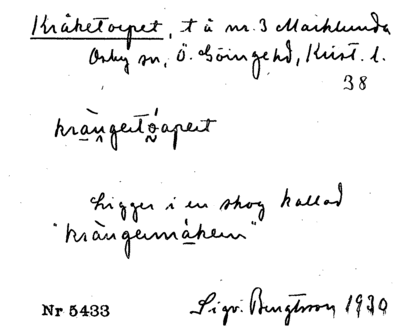 Kråketorpet, t å nr. 3 Marklunda
Osby sn, Ö. Göinge hd, Krist. l.
38
kràngertóarpert
Ligger i en skog kallad
"kràngermákern"
Nr 5433 Sigv. Bengtsson 1930